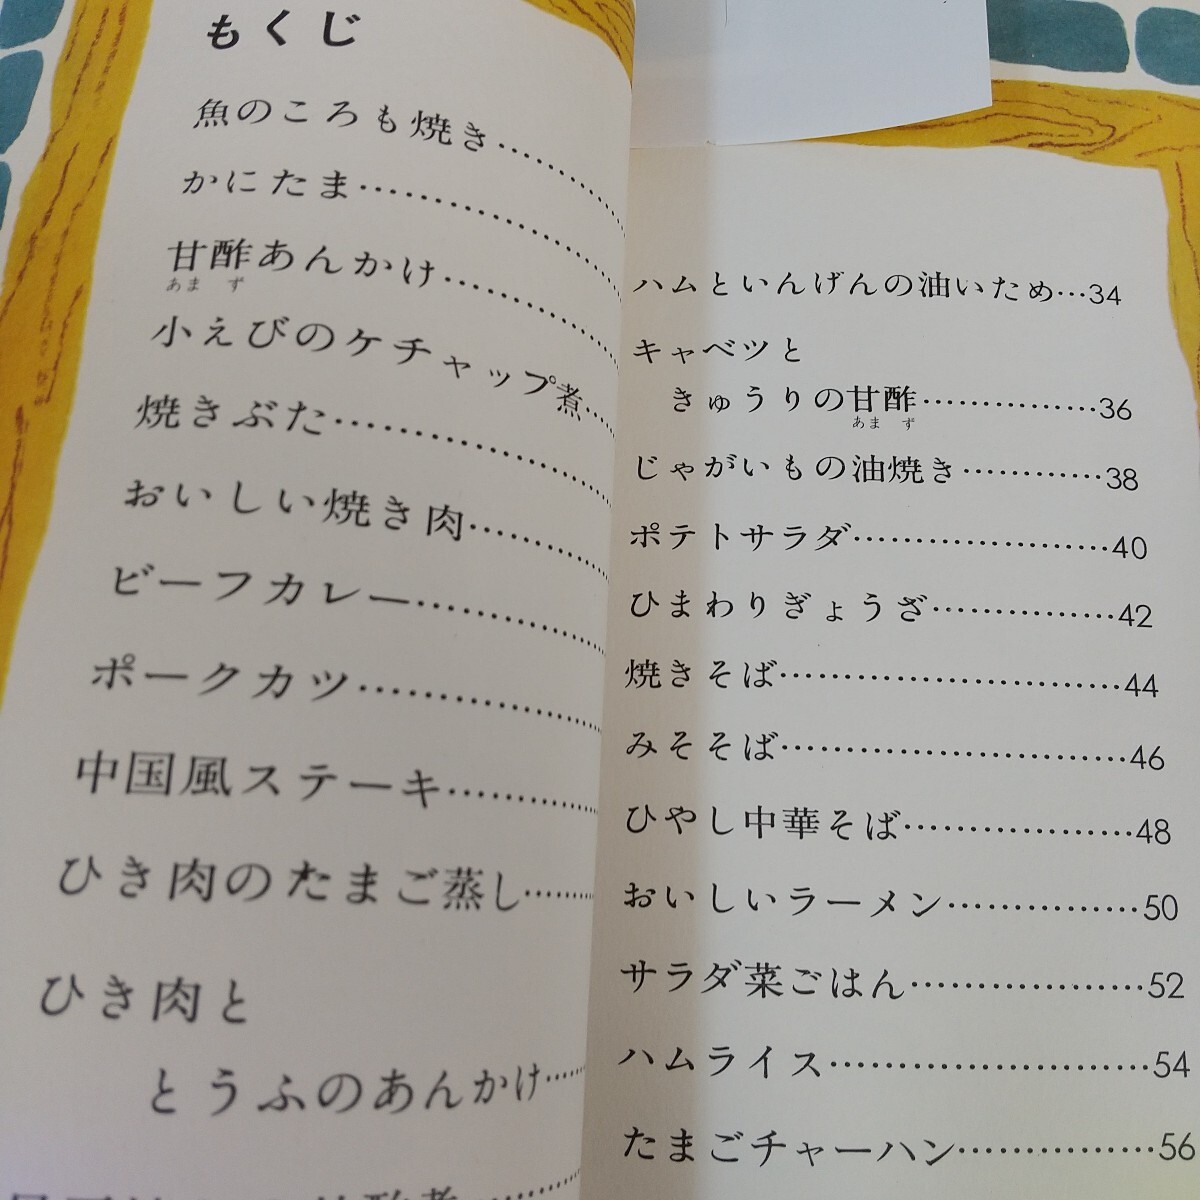 もくじ
魚のころも焼き……………
かにたま……………
甘酢あんかけ……………
あまず
小えびのケチャップ煮……
焼きぶた……………
おいしい焼き肉……………
ビーフカレー……………
ポークカツ……………
中国風ステーキ……………
ひき肉のたまご蒸し………
ひき肉と
とうふのあんかけ……
ハムといんげんの油いため…34
キャベツと
きゅうりの甘酢……………36
あまず
じゃがいもの油焼き…………38
ポテトサラダ…………………40
ひまわりぎょうざ……………42
焼きそば………………………44
みそそば………………………46
ひやし中華そば………………48
おいしいラーメン……………50
サラダ菜ごはん………………52
ハムライス……………………54
たまごチャーハン……………56